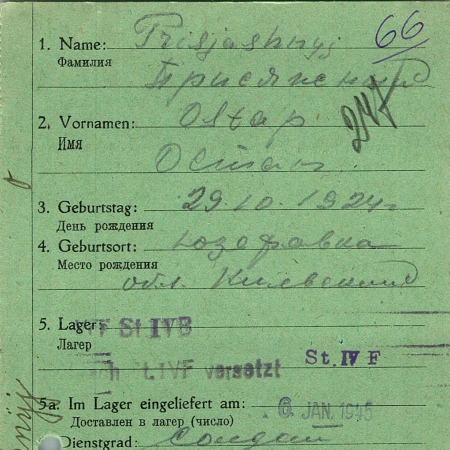 66
1. Name: Prisjashnyj
Фамилия Присяжный
247
2. Vornamen: Ostap
Имя Остап
3. Geburtstag: 29.10.1924 г
День рождения
4. Geburtsort: Юзефовка
Место рождения
обл. Киевский
5. Lager: St. IV B
Лагер
IVF versetzt St. IV F
5a. Im Lager eingeliefert am: 6. JAN. 1945
Доставлен в лагер (число)
Dienstgrad: Солдат